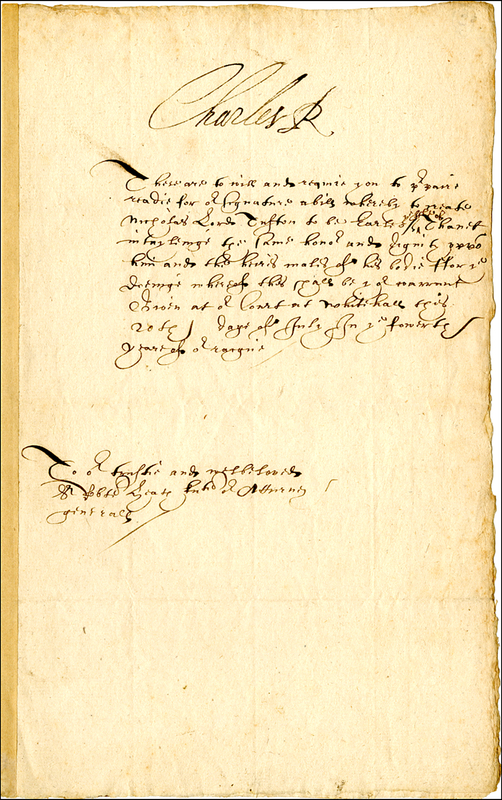 Charles R
These are to will and require you to p'pare
readie for or signature a bill whereby to create
Nicholas Lord Tufton to be Earle of the Isle of Thanet
intaylinge the same honor and dignity upo
him and the heires males of his bodie ffor ye
doeinge whereof this shall be yor warrant
Given at or Court at Whitehall this
20th daye of July In ye fowerth
yeare of or raigne
To or trustie and welbeloved
Sr Robte Heath knt or Atturney
generall